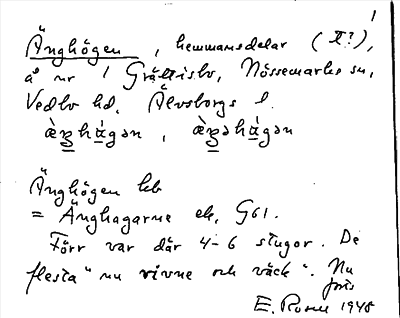 1
Änghögen, hemmansdelar (I?),
å nr 1 Grättisbo, Nössemarks sn,
Vedbo hd, Älvsborgs l.
Änghögen leb
= Änghagarne ek. G61.
Förr var där 4-6 stugor. De
flesta "nu rivne och väck". Nu
E. Rosell 1948